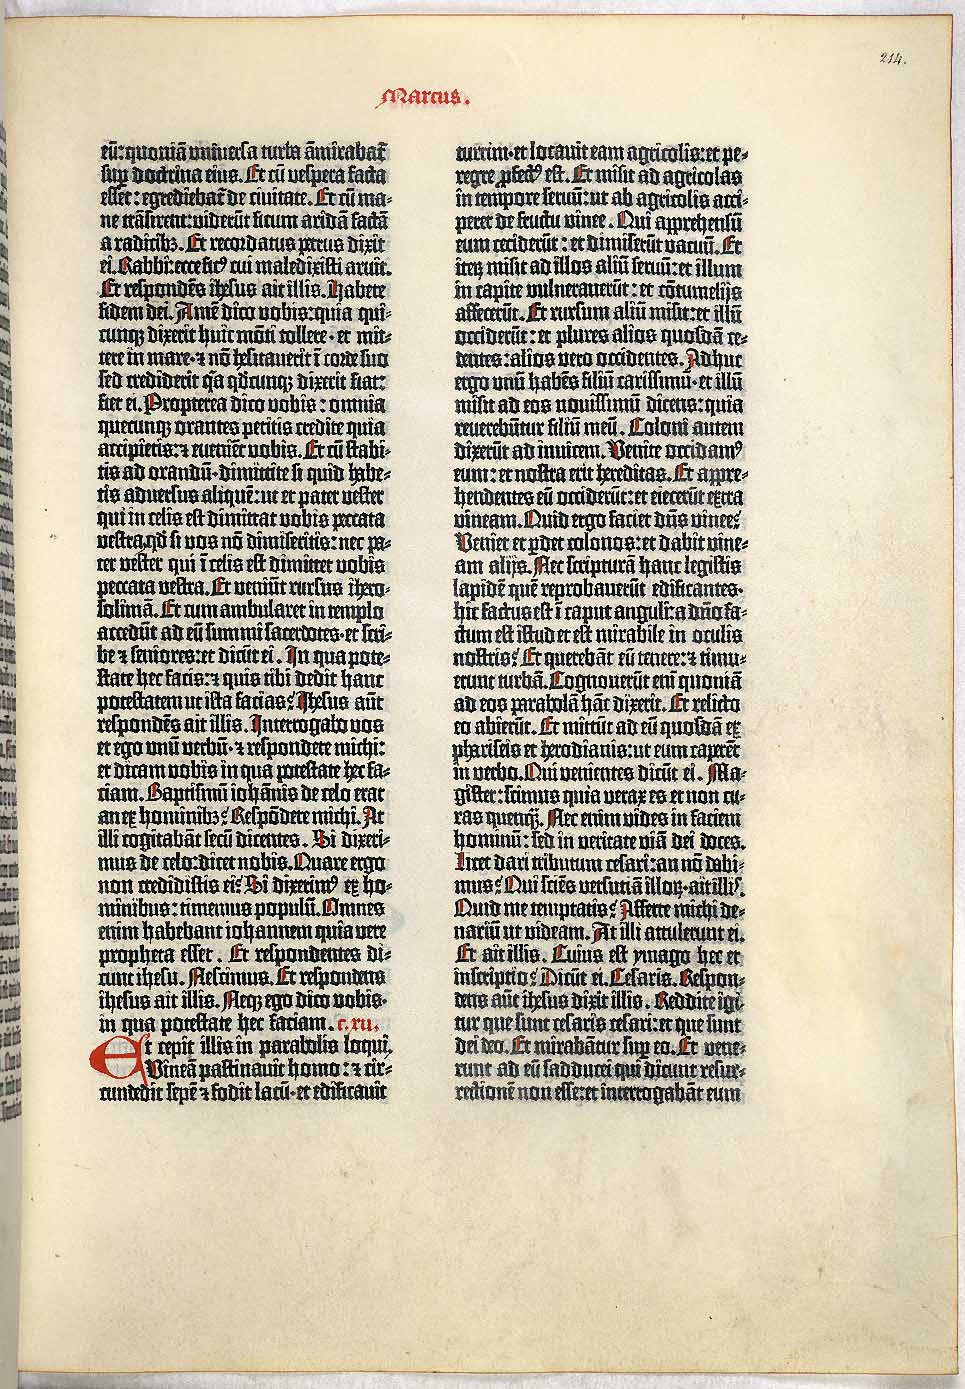 214.
Marcus.
eū: quoniā universa turba āmirabat᷑
sup̱ doctrina eius. Et cū vespera facta
esset: egrediebat᷑ de civitate. Et cū ma-
ne trāsirent: viderūt ficum aridā factā
a radicibꝫ. Et recordatus petrus dixit
ei. Rabbi: ecce ficꝰ cui maledixisti aruit.
Et respondēs ihesus ait illis. Habete
fidem dei. Amē dico vobis: quia qui-
cunqꝫ dixerit huic mōti tollere · et mit-
tere in mare · ⁊ nō hesitaverit ī corde suo
sed crediderit q̄a qd̄cunqꝫ dixerit fiat:
fiet ei. Propterea dico vobis: omnia
quecunqꝫ orantes petitis credite quia
accipietis: ⁊ evenie̅t vobis. Et cū stabi-
tis ad orandū · dimittite si quid habe-
tis adversus aliquē: ut et pater vester
qui in celis est dimittat vobis peccata
vestra. qd̄ si vos nō dimiseritis: nec pa-
ter vester qui ī celis est dimittet vobis
peccata vestra. Et veniūt rursus ihero-
solimā. Et cum ambularet in templo
accedūt ad eū summi sacerdotes · et scri-
be ⁊ seniores: et dicūt ei. In qua pote-
state hec facis: ⁊ quis tibi dedit hanc
potestatem ut ista facias? Ihesus aūt
respondēs ait illis. Interrogabo vos
et ego unū verbū · ⁊ respondete michi:
et dicam vobis in qua potestate hec fa-
ciam. Baptismū iohānis de celo erat
an ex hominibꝫ? Respōdete michi. At
illi cogitabāt secū dicentes. Si dixeri-
mus de celo: dicet nobis. Quare ergo
non credidistis ei? Si dixerimꝰ ex ho-
minibus: timemus populū. Omnes
enim habebant iohannem quia vere
propheta esset. Et respondentes di-
cunt ihesu. Nescimus. Et respondens
ihesus ait illis. Neqꝫ ego dico vobis ·
in qua potestate hec faciam. c. xii.
Et cepit illis in parabolis loqui.
Vineā pastinavit homo: ⁊ cir-
cundedit sepē ⁊ fodit lacū · et edificavit
turrim · et locavit eam agricolis: et pe-
regre ꝓfectꝰ est. Et misit ad agricolas
in tempore servū: ut ab agricolis acci-
peret de fructu vinee. Qui apprehensū
eum ceciderūt: et dimiserūt vacuū. Et
iteꝝ misit ad illos aliū servū: et illum
in capite vulneraverūt: et cōtumelijs
affecerūt. Et rursum aliū misit: et illū
occiderūt: et plures alios quosdā ce-
dentes: alios vero occidentes. Adhuc
ergo unū habēs filiū carissimū · et illū
misit ad eos novissimū dicens: quia
reverebūtur filiū meū. Coloni autem
dixerūt ad invicem. Venite occidamꝰ
eum: et nostra erit hereditas. Et appre-
hendentes eū occiderūt: et eiecerūt extra
vineam. Quid ergo faciet dn̄s vinee?
Veniet et ꝑdet colonos: et dabit vine-
am alijs. Nec scripturā hanc legistis
lapidē quē reprobaverūt edificantes ·
hic factus est ī caput anguli: a dn̄o fa-
ctum est istud et est mirabile in oculis
nostris? Et querebāt eū tenere: ⁊ timu-
erunt turbā. Cognoverūt eni̅ quoniā
ad eos parabolā hāc dixerit. Et relicto
eo abierūt. Et mittūt ad eū quosdā ex
phariseis et herodianis: ut eum caperēt
in verbo. Qui venientes dicūt ei. Ma-
gister: scimus quia verax es et non cu-
ras quenqꝫ. Nec enim vides in faciem
hominū: sed in veritate viā dei doces.
Licet dari tributum cesari: an nō dabi-
mus? Qui sciēs versutiā illoꝝ · ait illis.
Quid me temptatis? Afferte michi de-
nariū ut videam. At illi attulerunt ei.
Et ait illis. Cuius est ymago hec et
inscriptio? Dicūt ei. Cesaris. Respon-
dens aūt ihesus dixit illis. Reddite igi-
tur que sunt cesaris cesari: et que sunt
dei deo. Et mirabātur sup̱ eo. Et vene-
runt ad eū saducei qui dicunt resur-
rectionē non esse: et interrogabāt eum